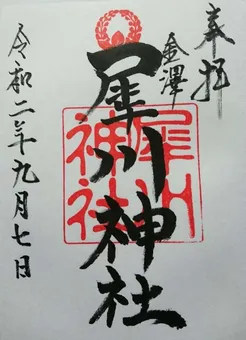 奉拝
金澤
犀川神社
犀川
神社
令和二年九月七日